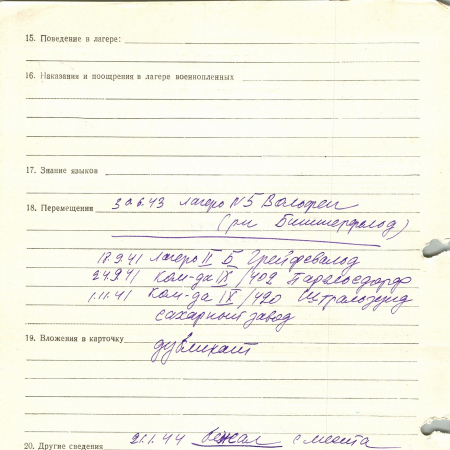 15. Поведение в лагере:
16. Наказания и поощрения в лагере военнопленных
17. Знание языков
18. Перемещения 30.6.43 лагерь N5 Вольфен
(р-н Биттерфельд)
17.9.41 Лагерь II Б Грейфсвальд
24.9.41 Ком-да IX/402
1.11.41 Ком-да IX/420 Штральзунд
сахарный завод
19. Вложения в карточку дубликат
20. Другие сведения 21.1.44 бежал с места